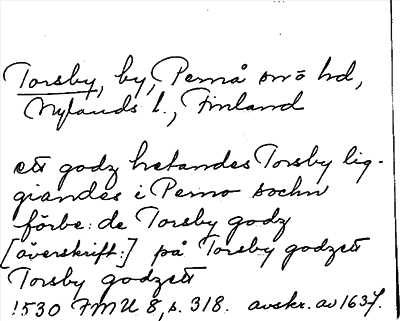 Torsby, by, Pernå sn o hd,
Nylands l., Finland
ett godz hetandes Torsby lig-
giandes i Perno sochn
förbe: de Torsby godz
[överskrift:] på Torsby godzett
Torsby godzett
1530 FMU 8, s. 318. avskr. av 1637.